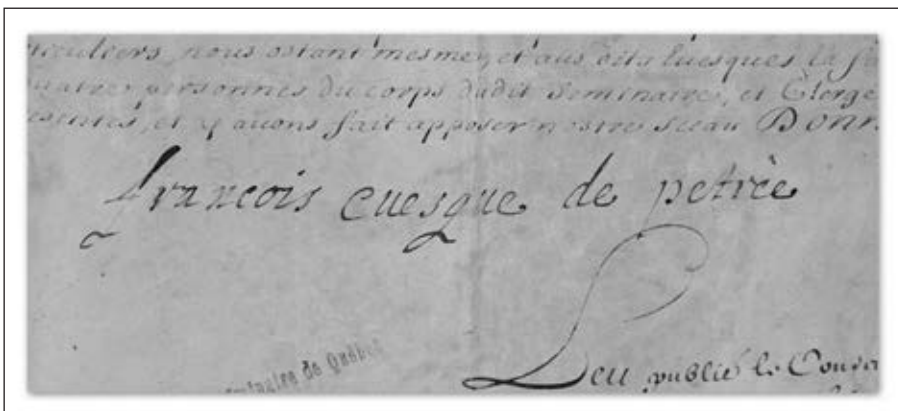 nous ostant mesme et aus dits Euesques la
quatre personnes du corps dudit Seminaire, et Clerge
et y auons fait apposer nostre Sceau Donn
françois euesque de petrée
Seminaire de Québec
Leu publié le Conse